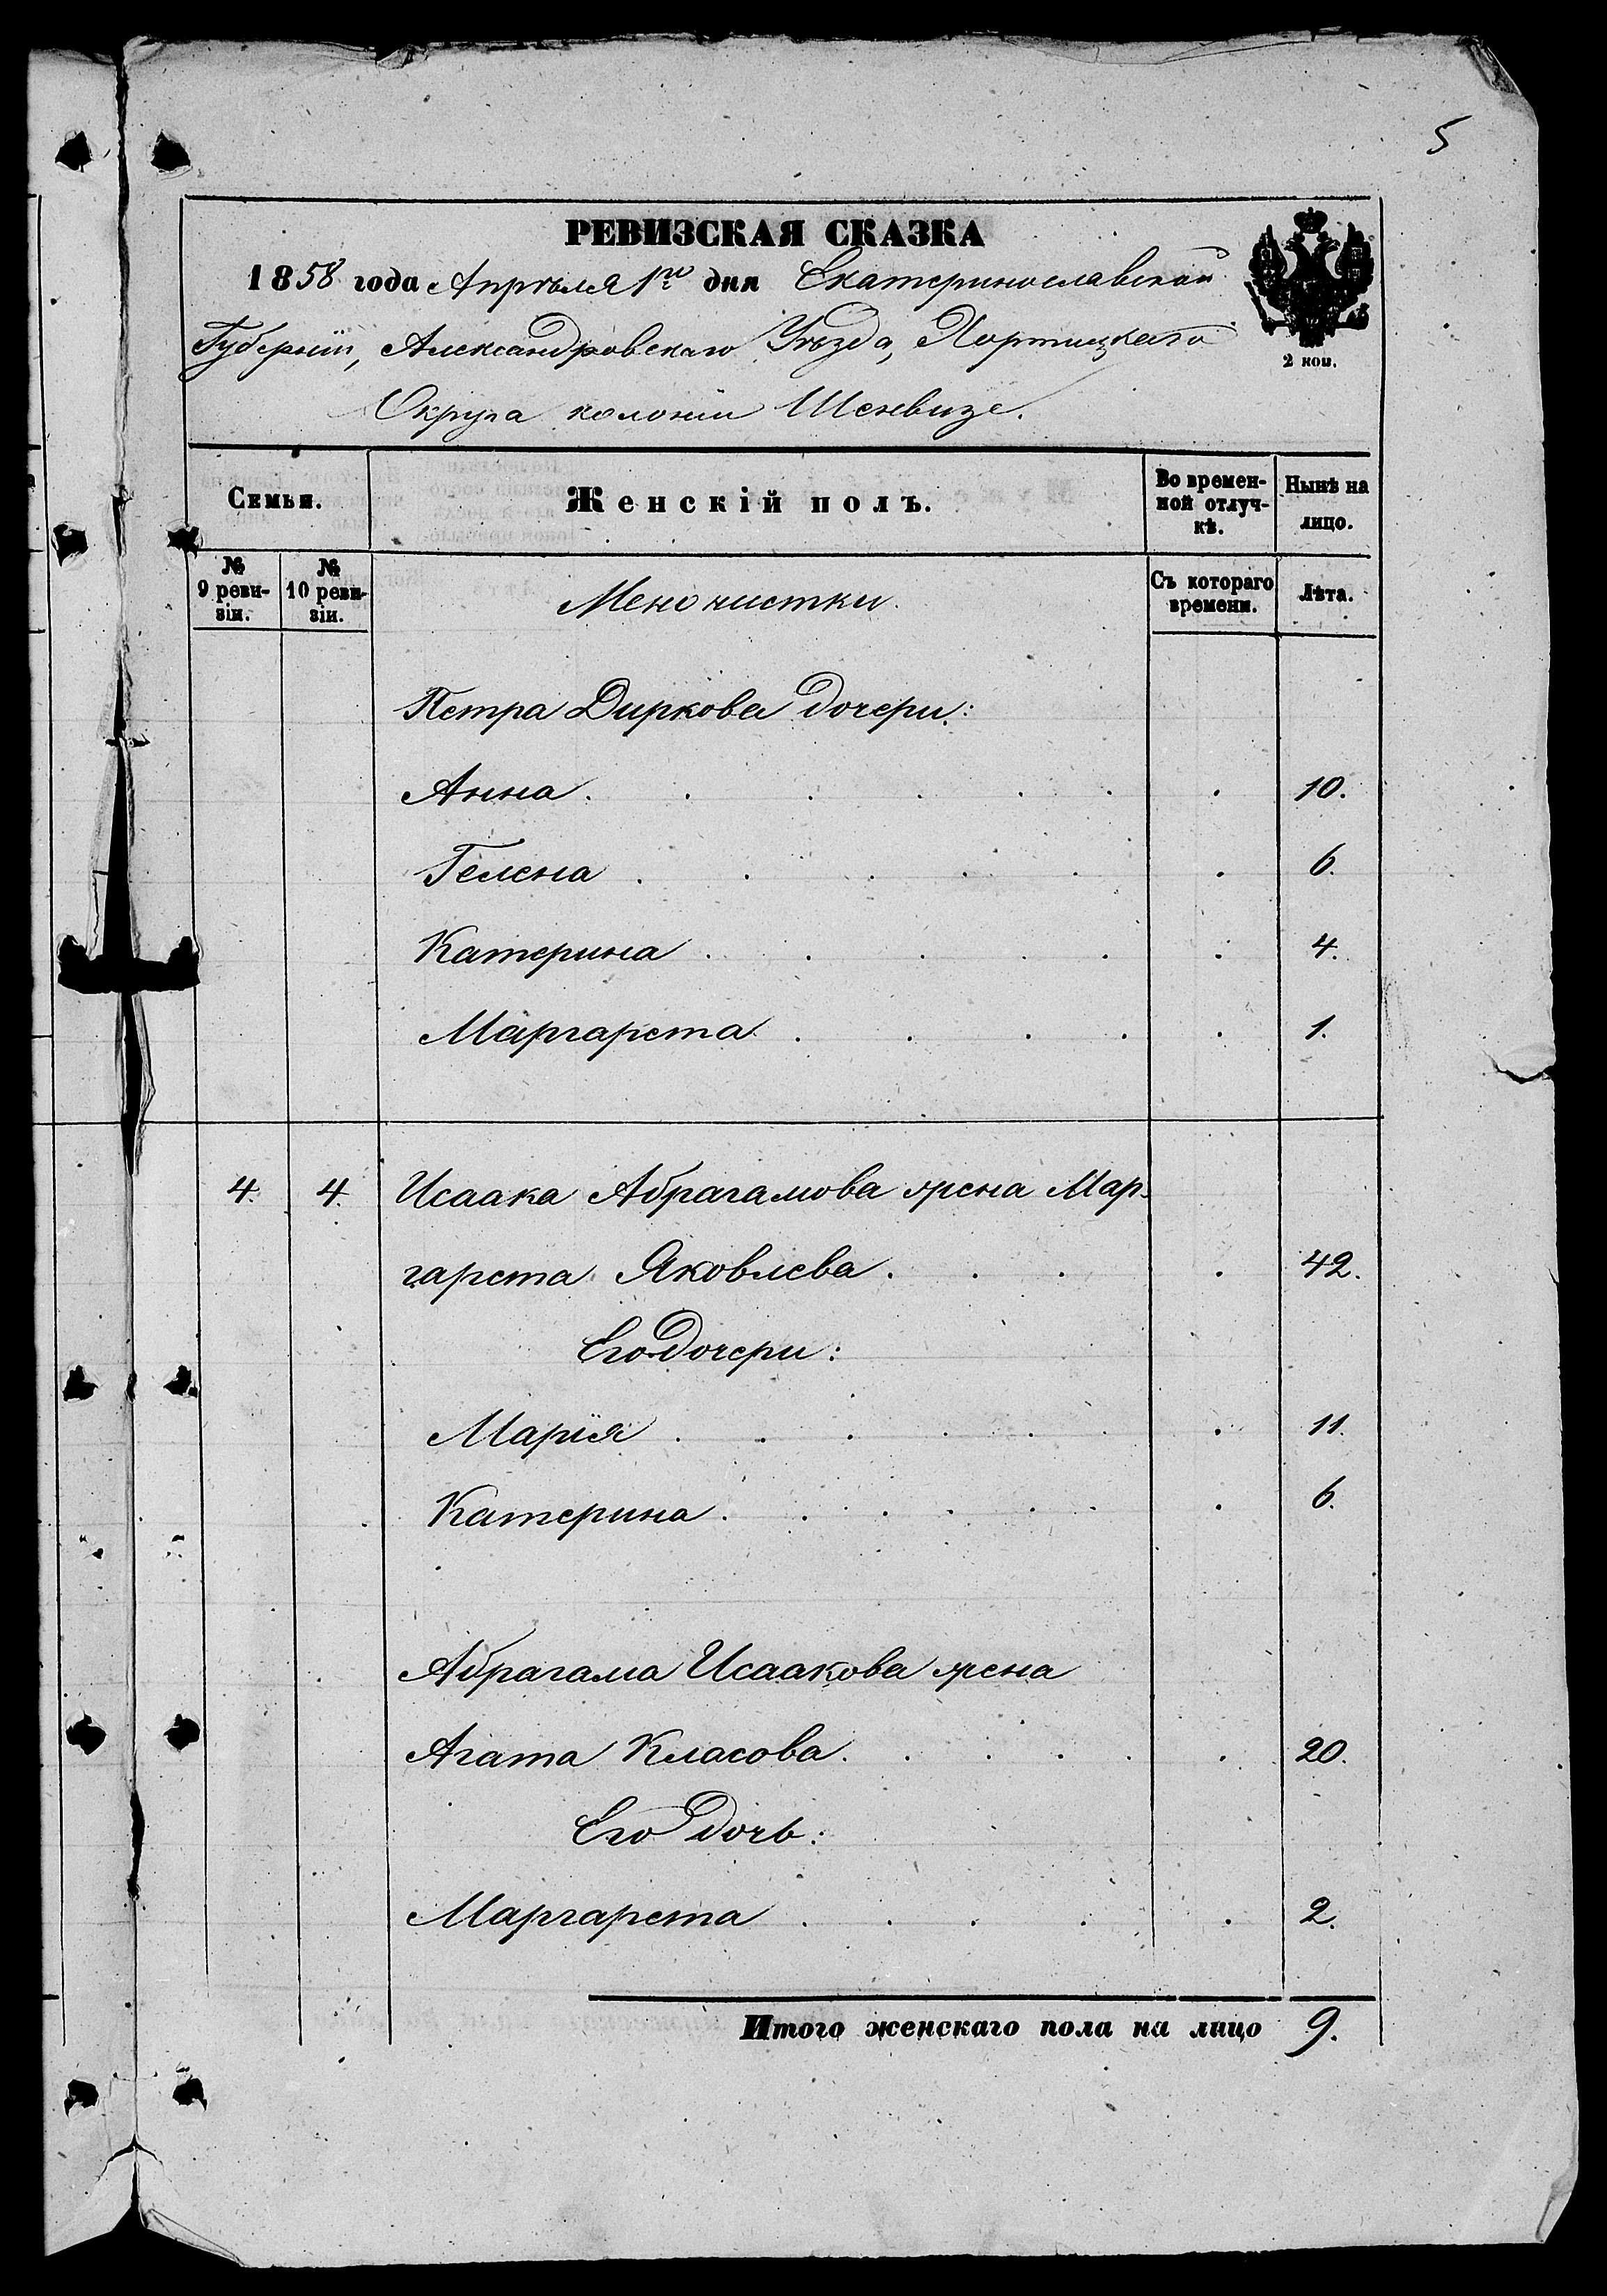 5
РЕВИЗСКАЯ СКАЗКА
1858 года Апрѣля 1го дня Екатеринославской
Губерніи, Александровскаго Уѣзда, Хортицкаго
2 коп.
Округа колоніи Шенвизе.
Семьи.
Женскій полъ.
Во времен-
ной отлуч-
кѣ.
Нынѣ на
лицо.
№
9 реви-
зіи.
№
10 реви-
зіи.
Менонистки.
Съ котораго
времени.
Лѣта.
Петра Диркова дочери:
Анна . . . . . . . 10.
Гелена . . . . . . 6.
Катерина . . . . . . 4.
Маргарета . . . . . 1.
4. 4. Исаака Абрагамова жена Мар-
гарета Яковлева . . . . 42.
Его дочери:
Марія . . . . . . . 11.
Катерина . . . . . . 6.
Абрагама Исаакова жена
Агата Класова . . . . . 20.
Его дочь:
Маргарета . . . . . 2.
Итого женскаго пола на лицо 9.